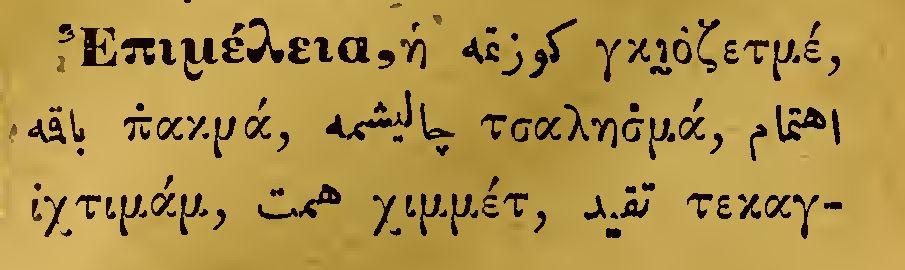 Ἐπιμέλεια, ἡ كوزتمه γκι̮ȯζετμέ,
باقمه π̇ακμά, چاليشمه τσαλησ̇μά, اهتمام
ἰχτιμάμ, همت χιμμέτ, تقيد τεκαγ-